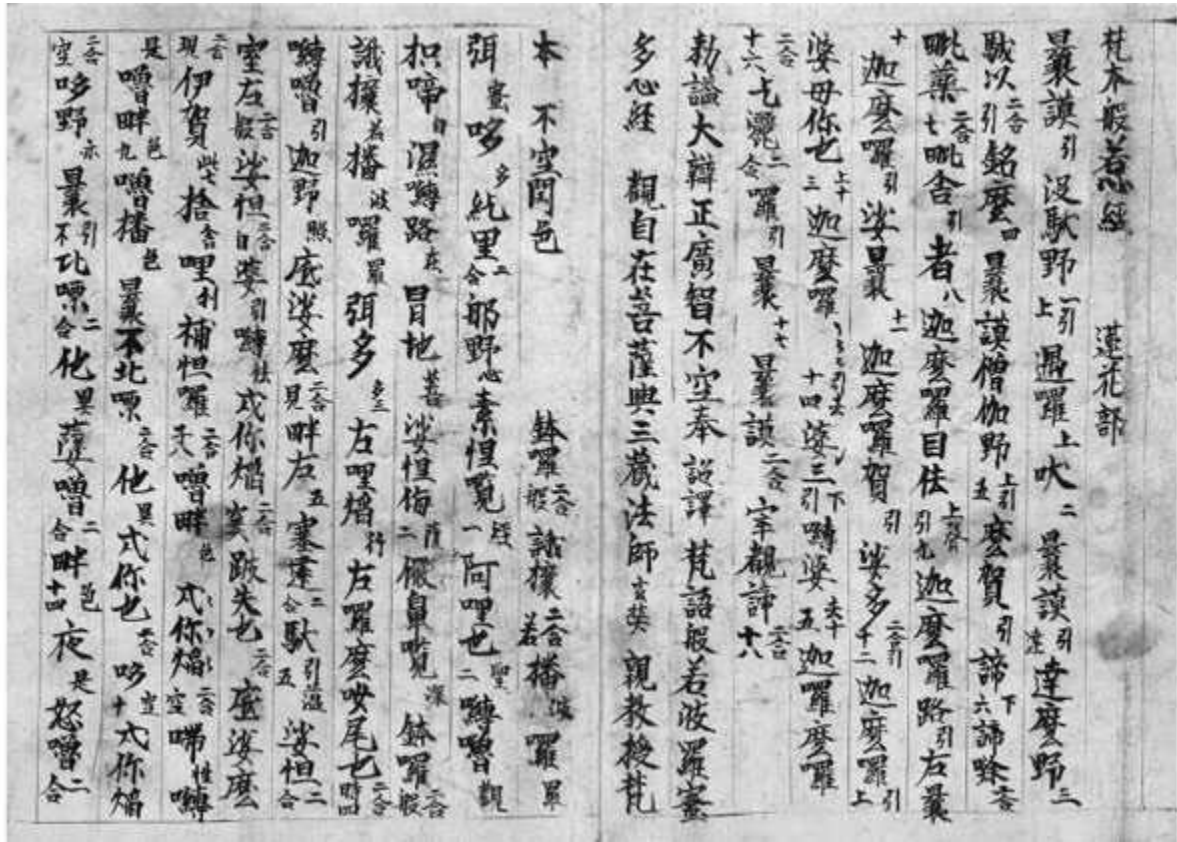 梵本般惹心經　蓮花部
曩謨引沒馱野一引上遏囉上吠二曩謨引達麼野三
馱以二合引銘麼四曩謨僧伽野上引五麼賀引諦下六諦㗚二合
毗藥二合七毗舍引者八迦麼囉目佉上聲引九迦麼囉路引左曩
十迦麼囉引娑曩十一迦麼囉賀引娑多二合引十二迦麼囉引上
婆母你也上十三迦麼囉十四婆三下引嚩婆五迦囉麼囉
二合十六乞灑二合囉引曩十七曩謨二合宰覩諦二合十八
勅謚大辯正廣智不空奉　詔譯　梵語般若波羅蜜
多心經　觀自在菩薩與三藏法師玄奘　親教授梵
本　不空閏色　鉢囉二合般誐攘二合若播波囉羅
弭蜜哆多紇里二合那野心素怛覽經一阿哩也聖二嚩嚕觀
枳帝自濕嚩路在冒地菩娑怛侮薩二儼鼻覽深鉢囉二合般
誐攘若播波囉羅弭多多三左哩焰行左囉麼女尾也二合時四
嚩嚕引迦野照底娑麼二合見畔左五塞建二合馱引蘊五娑怛二合
室左二合娑怛二合自婆引嚩性式你焰二合跛失也二合底娑麼
二合現伊賀此七捨舍哩利補怛囉二合嚕畔色式你焰二合空啼性嚩
是嚕畔色九嚕播色曩不北㗚二合他異式你也二合哆空十式你焰
二合空哆野亦曩引不比㗚二合他異薩嚕二合畔色十四夜是怒嚕二合